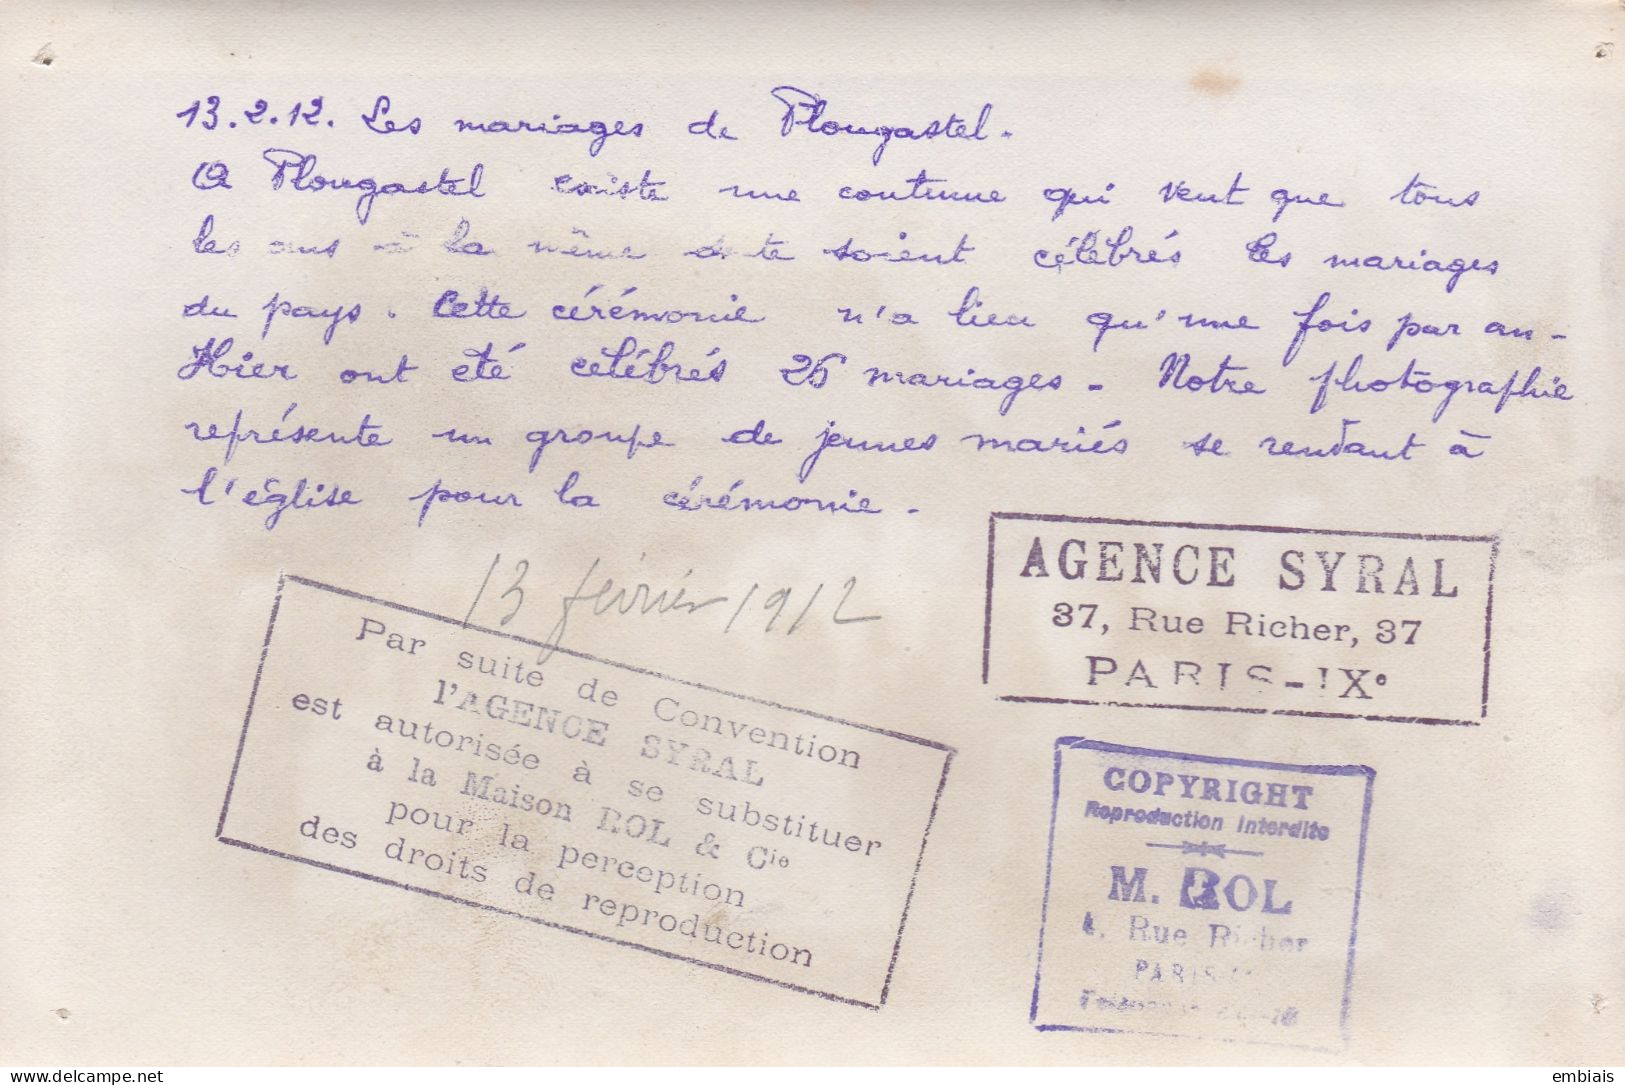 13.2.12. Les mariages de Plougastel.
A Plougastel existe une coutume qui veut que tous
les ans à la même date soient célébrés les mariages
du pays. Cette cérémonie n'a lieu qu'une fois par an.
Hier ont été célébrés 26 mariages. Notre photographie
représente un groupe de jeunes mariés se rendant à
l'église pour la cérémonie.
13 février 1912
AGENCE SYRAL
37, Rue Richer, 37
PARIS-IXe
Par suite de Convention
l'AGENCE SYRAL
est autorisée à se substituer
à la Maison ROL & Cie
pour la perception
des droits de reproduction
COPYRIGHT
Reproduction interdite
M. ROL
4, Rue Richer
PARIS
delcampe.net
embiais